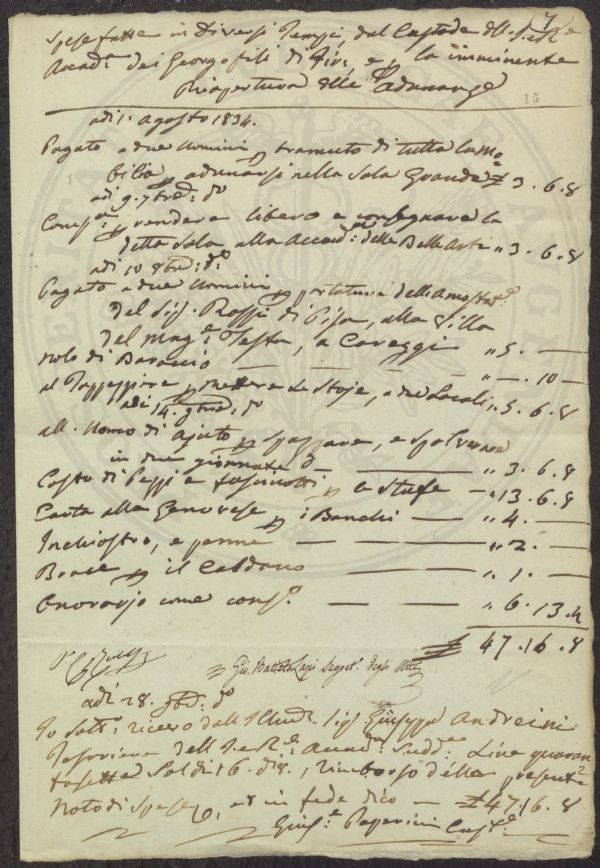 Spese fatte in Diversi Tempi, dal Custode dll. I. e R.e
Accad.a dei Georgofili di Fir., e p la imminente
Riapertura delle Adunanze
15
adi 1. agosto 1834.
Pagato a due Uomini p tramuto di tutta la Mo
bilia, p adunarsi nella Sala Grande £ 3. 6. 8
adi 9. 7bre d.o
Comp.a p rendere libero e consegnare la
detta Sala alla Accad.a delle Belle Arti „ 3. 6. 8
adi 10 8bre: d.o
Pagato a due Uomini p portatura dell
del Sig. Rossi di Pisa, alla Villa
del Mag.e Testa, a Careggi „ 5. —
Nolo di Baroccio — — — „ — . 10 —
al Tappezziere p mettere Le Stoje, a due Locali „ 5. 6. 8
adi 14. 9bre: d.o
all. Uomo di ajuto p spazzare, e spolverare
in due giornate d — — „ 3. 6. 8
Costo di Pezzi e fascinotti p le stufe — „ 13. 6. 8
Carta alla Genovese p i Banchi — „ 4. —
Inchiostro, e penne — — — „ 2. —
Brace p il Caldano — — „ 1. —
Onorario come cons.o — — — „ 6. 13. 4
£ 47. 16. 8
Gio. Batista Lapi Segret. degli Atti
adi 28. 9bre: d.o
Io Sott.o ricevo dall Illmo. Sig Giuseppe Andreini
Tesoriere dell I. e R.e Accad.a Sudd.a Lire quaran
tasette Soldi 16. d. 8., rimborso delle presente
Noto di Spese, ed in fede dico — £ 47. 16. 8
Gius.e Papini Cust.e